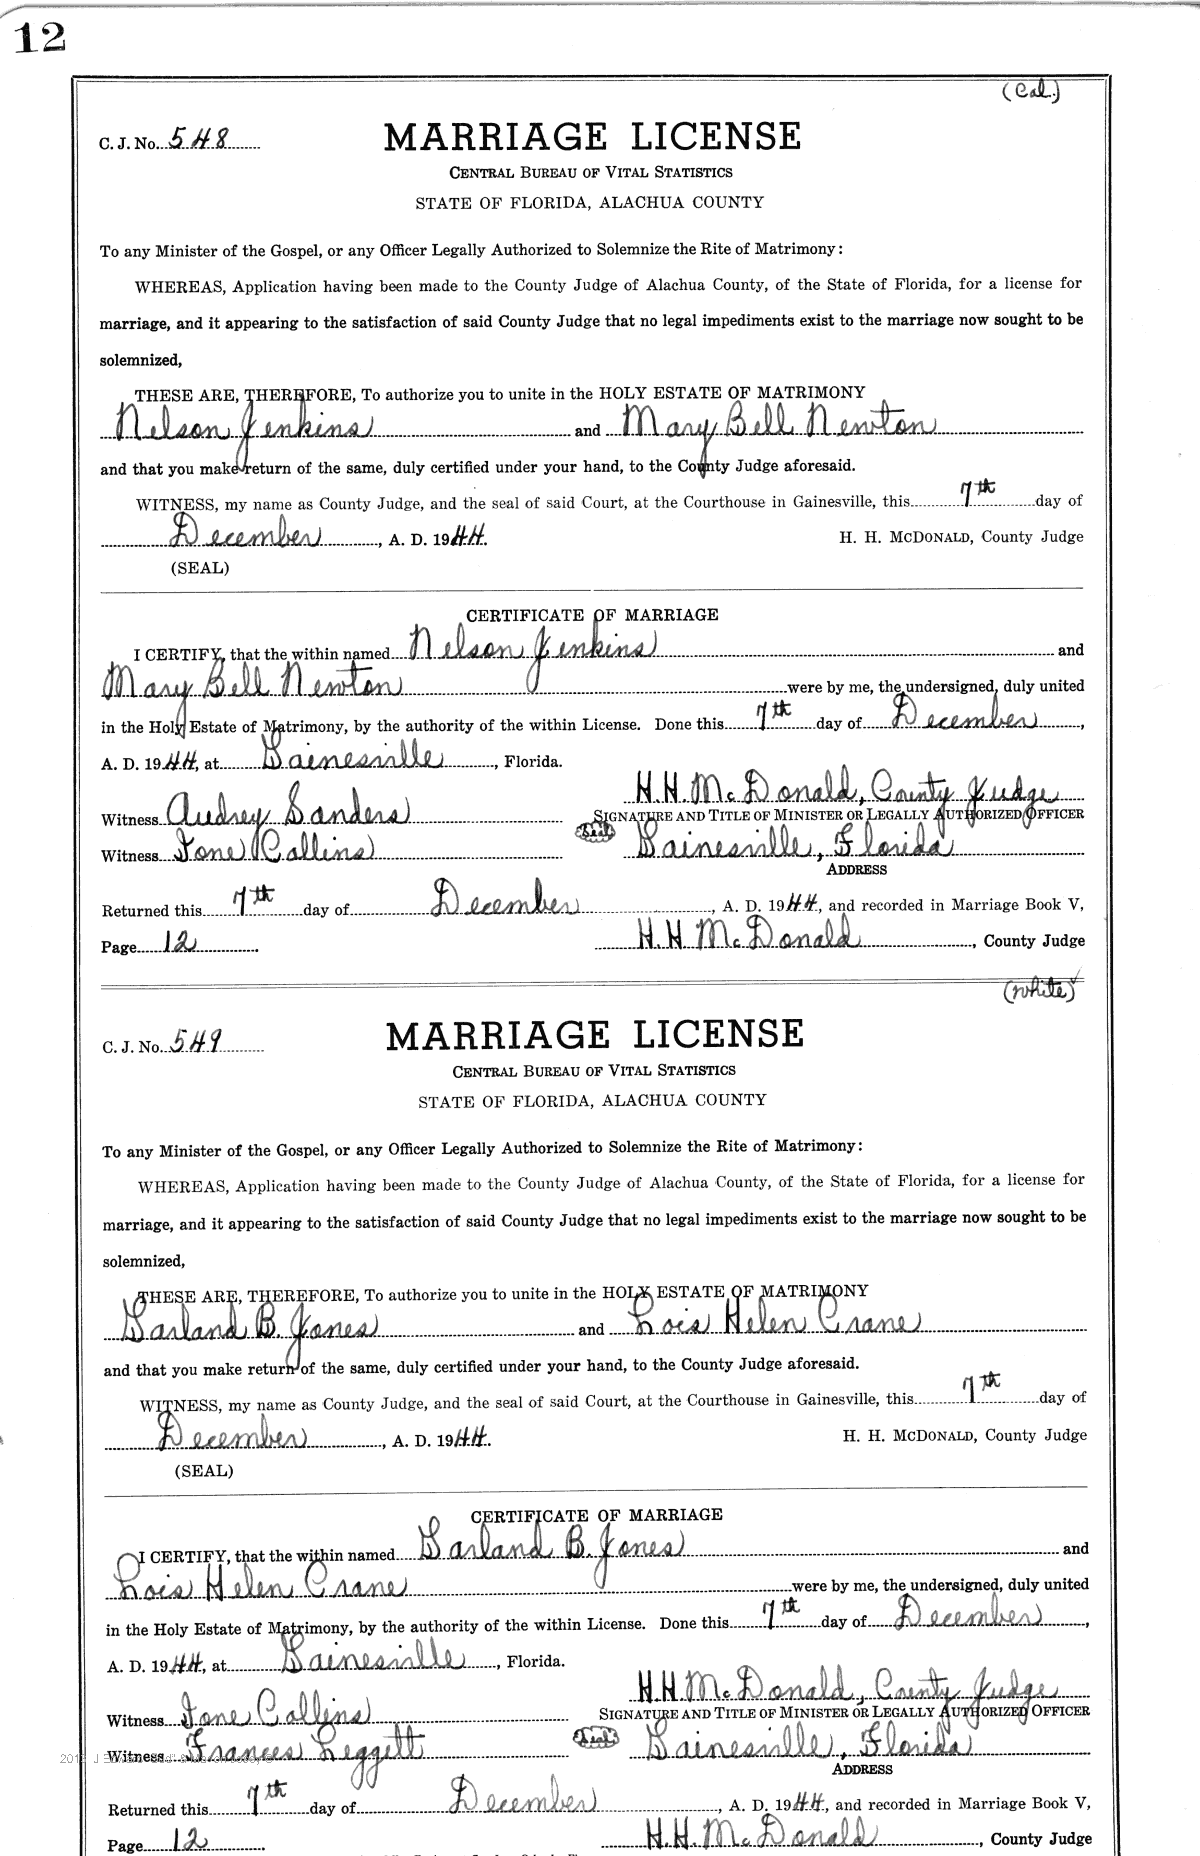 12
(Col.)
C. J. No. 548
MARRIAGE LICENSE
CENTRAL BUREAU OF VITAL STATISTICS
STATE OF FLORIDA, ALACHUA COUNTY
To any Minister of the Gospel, or any Officer Legally Authorized to Solemnize the Rite of Matrimony:
WHEREAS, Application having been made to the County Judge of Alachua County, of the State of Florida, for a license for
marriage, and it appearing to the satisfaction of said County Judge that no legal impediments exist to the marriage now sought to be
solemnized,
THESE ARE, THEREFORE, To authorize you to unite in the HOLY ESTATE OF MATRIMONY
Nelson Jenkins and Mary Bell Newton
and that you make return of the same, duly certified under your hand, to the County Judge aforesaid.
WITNESS, my name as County Judge, and the seal of said Court, at the Courthouse in Gainesville, this 7th day of
December, A. D. 1944. H. H. McDONALD, County Judge
(SEAL)
CERTIFICATE OF MARRIAGE
I CERTIFY, that the within named Nelson Jenkins and
Mary Bell Newton were by me, the undersigned, duly united
in the Holy Estate of Matrimony, by the authority of the within License. Done this 7th day of December,
A. D. 1944, at Gainesville, Florida.
H. H. McDonald, County Judge
Witness Audrey Sanders SIGNATURE AND TITLE OF MINISTER OR LEGALLY AUTHORIZED OFFICER
(Seal)
Witness Ione Collins Gainesville, Florida
ADDRESS
Returned this 7th day of December, A. D. 1944, and recorded in Marriage Book V,
Page 12 H. H. McDonald, County Judge
(White)
C. J. No. 549
MARRIAGE LICENSE
CENTRAL BUREAU OF VITAL STATISTICS
STATE OF FLORIDA, ALACHUA COUNTY
To any Minister of the Gospel, or any Officer Legally Authorized to Solemnize the Rite of Matrimony:
WHEREAS, Application having been made to the County Judge of Alachua County, of the State of Florida, for a license for
marriage, and it appearing to the satisfaction of said County Judge that no legal impediments exist to the marriage now sought to be
solemnized,
THESE ARE, THEREFORE, To authorize you to unite in the HOLY ESTATE OF MATRIMONY
Garland B. Jones and Lois Helen Crane
and that you make return of the same, duly certified under your hand, to the County Judge aforesaid.
WITNESS, my name as County Judge, and the seal of said Court, at the Courthouse in Gainesville, this 7th day of
December, A. D. 1944. H. H. McDONALD, County Judge
(SEAL)
CERTIFICATE OF MARRIAGE
I CERTIFY, that the within named Garland B. Jones and
Lois Helen Crane were by me, the undersigned, duly united
in the Holy Estate of Matrimony, by the authority of the within License. Done this 7th day of December,
A. D. 1944, at Gainesville, Florida.
H. H. McDonald, County Judge
Witness Ione Collins SIGNATURE AND TITLE OF MINISTER OR LEGALLY AUTHORIZED OFFICER
(Seal)
Witness Frances Leggett Gainesville, Florida
ADDRESS
Returned this 7th day of December, A. D. 1944, and recorded in Marriage Book V,
Page 12 H. H. McDonald, County Judge